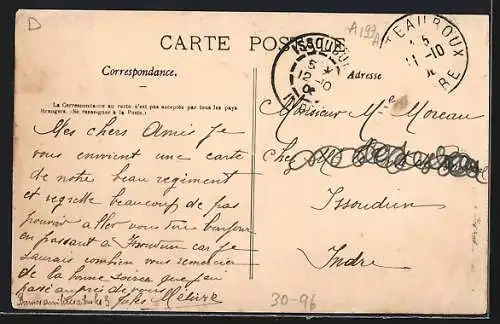 D
A 199
CARTE POSTALE
ISSOUDUN
5
12-10
CHATEAUROUX
11-10
INDRE
Correspondance.
Adresse
La Correspondance au recto n'est pas acceptée par tous les pays
étrangers. (Se renseigner à la Poste.)
Mes chers Amis Je
vous envoient une carte
de notre beau regiment
et regrette beaucoup de pas
pouvoir aller vous dire bonjour
en passant a Issoudun car je
saurais combien vous remercier
de la bonne soirée que j'ai
passé auprès de vous
Jules Métivé
Monsieur Me Moreau
Chez M
Issoudun
Indre
30-96